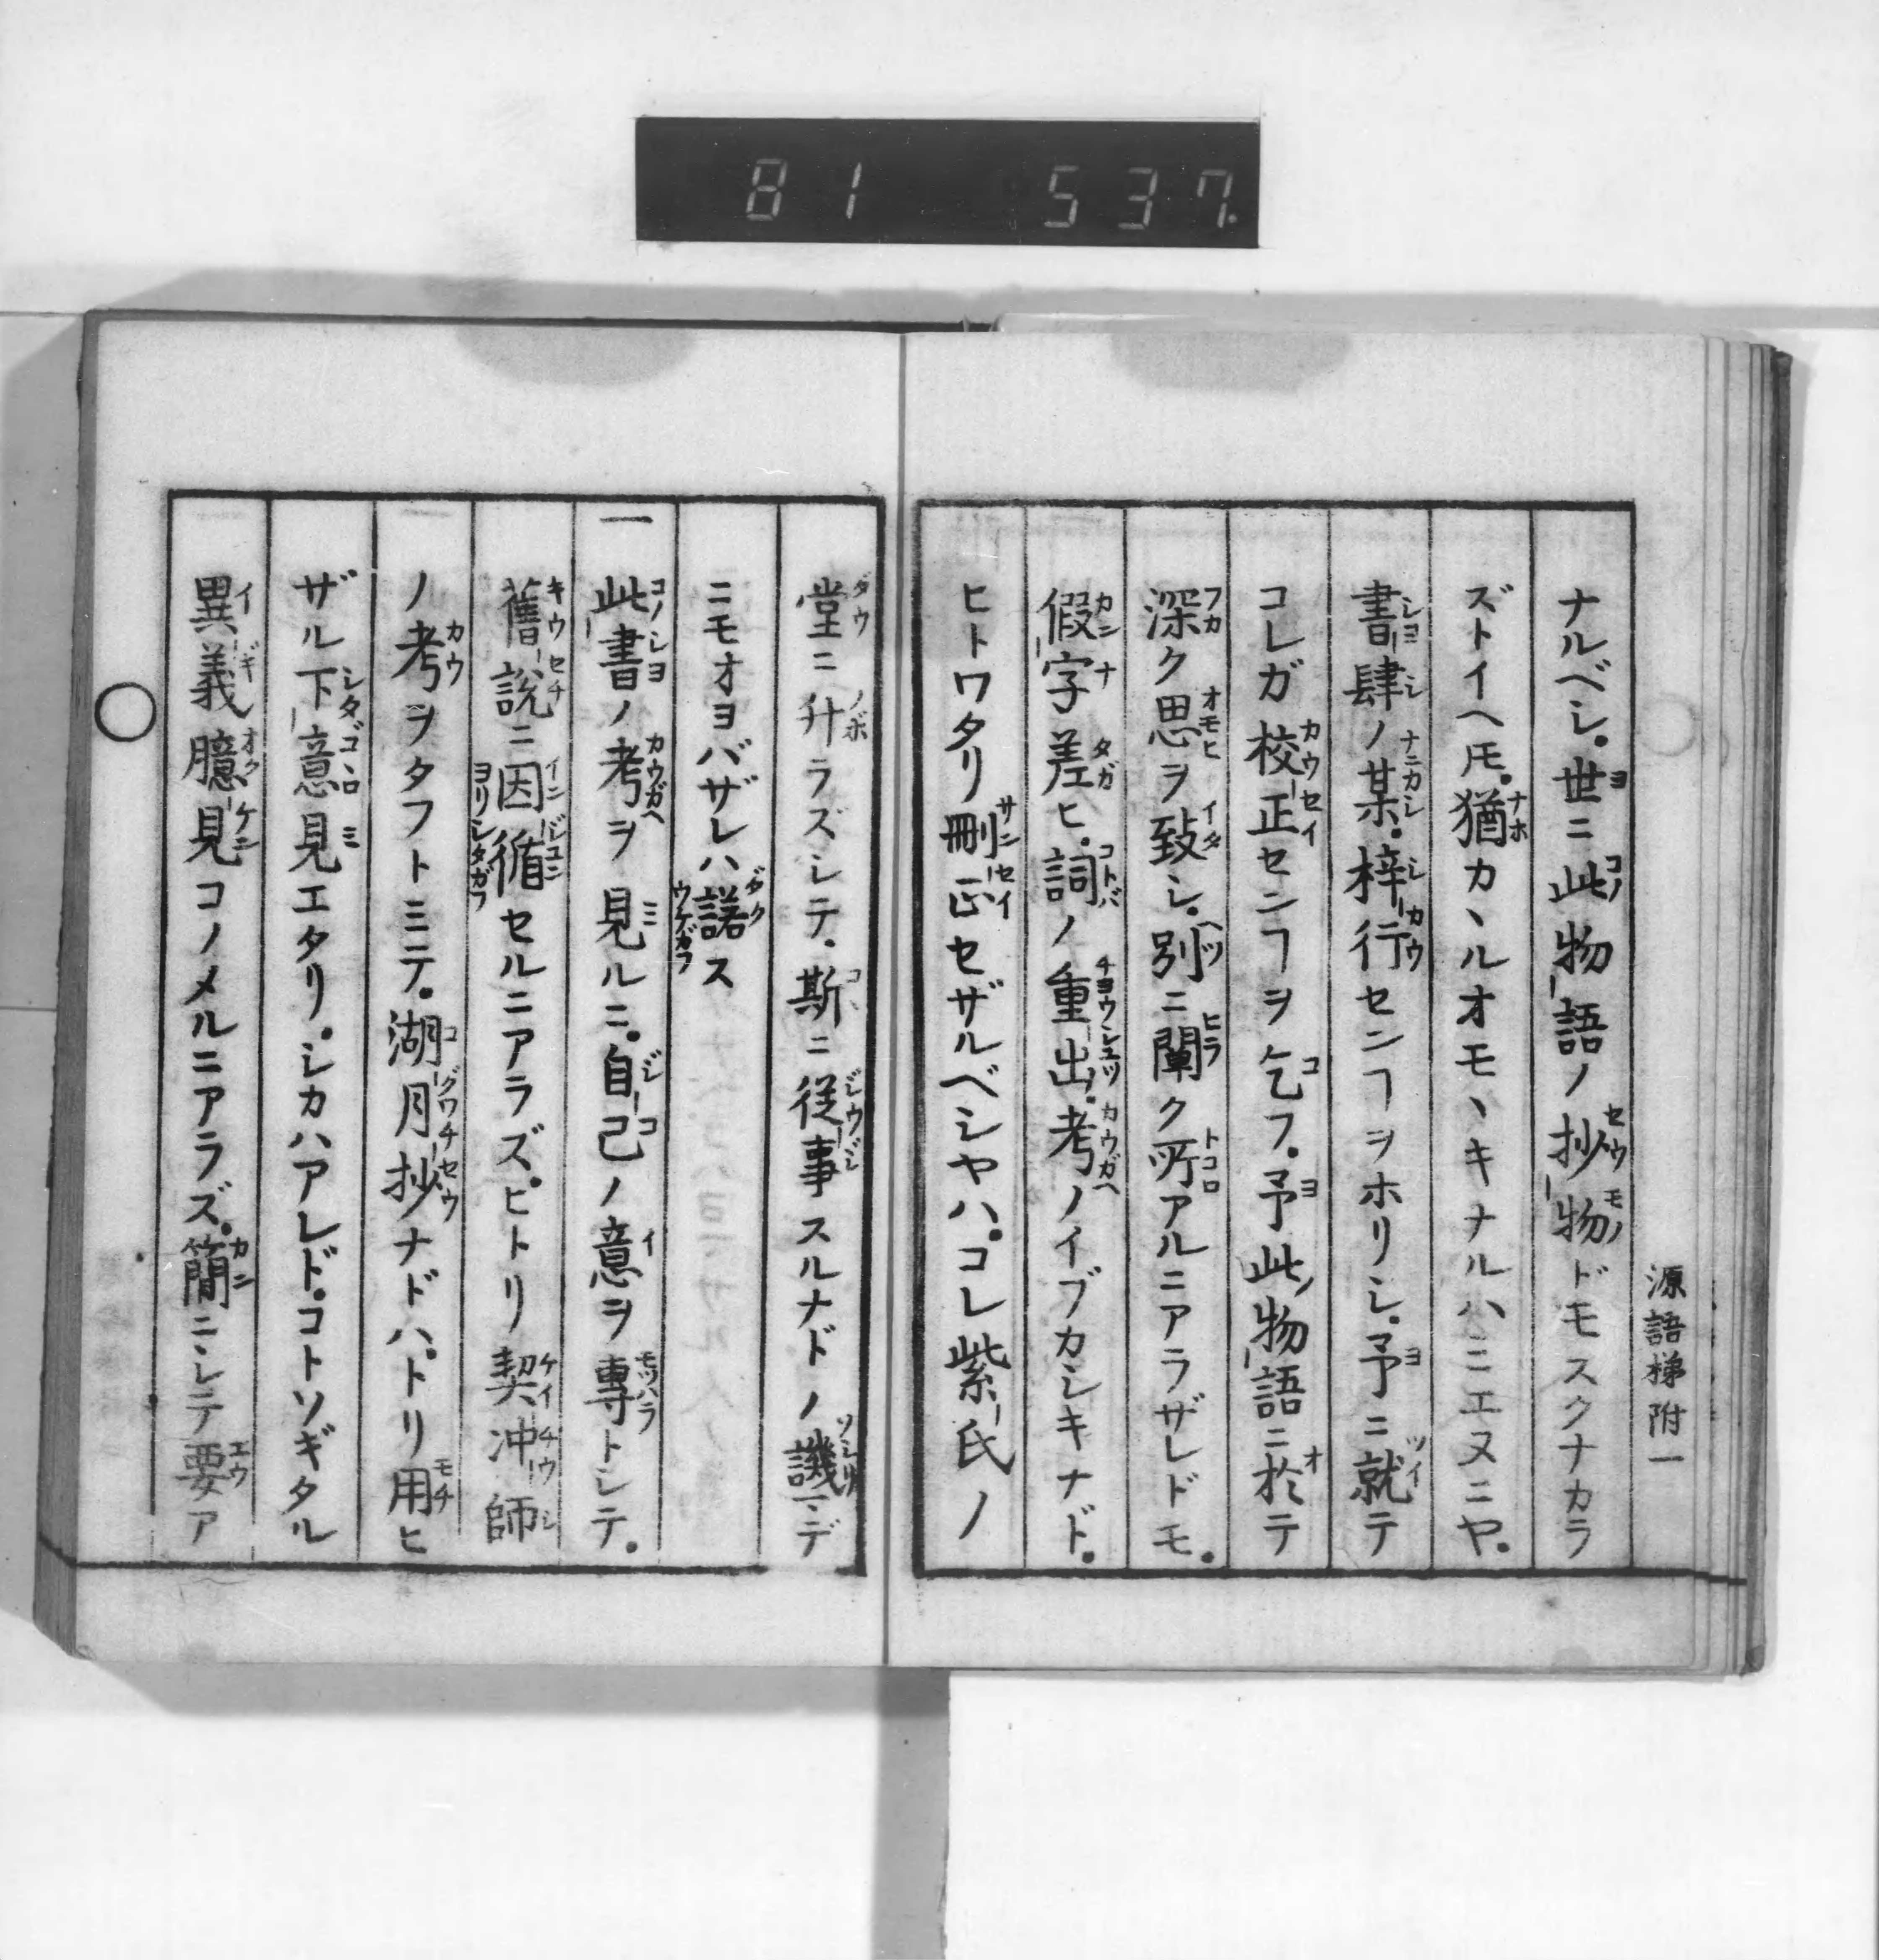 81 537
源語梯附一
ナルベシ。世ニ此物語ノ抄物ドモスクナカラ
ズトイヘ𪜈。猶カヽルオモヽキナルハミエヌニヤ。
書肆ノ某。梓行センヿヲホリシ。予ニ就テ
コレガ校正センヿヲ乞フ。予此物語ニ於テ
深ク思ヲ致シ。別ニ闡ク所アルニアラザレドモ。
假字差ヒ。詞ノ重出。考ノイブカシキナド。
ヒトワタリ刪正セザルベシヤハ。コレ紫氏ノ
堂ニ升ラズシテ。斯ニ従事スルナドノ譏マデ
ニモオヨバザレハ諾ス
一此書ノ考ヲ見ルニ。自己ノ意ヲ専トシテ。
舊説ニ因循セルニアラズ。ヒトリ契冲師
ノ考ヲタフトミテ。湖月抄ナドハ、トリ用ヒ
ザル下意見エタリ。シカハアレド。コトソギタル
異義臆見コノメルニアラズ。簡ニシテ要ア